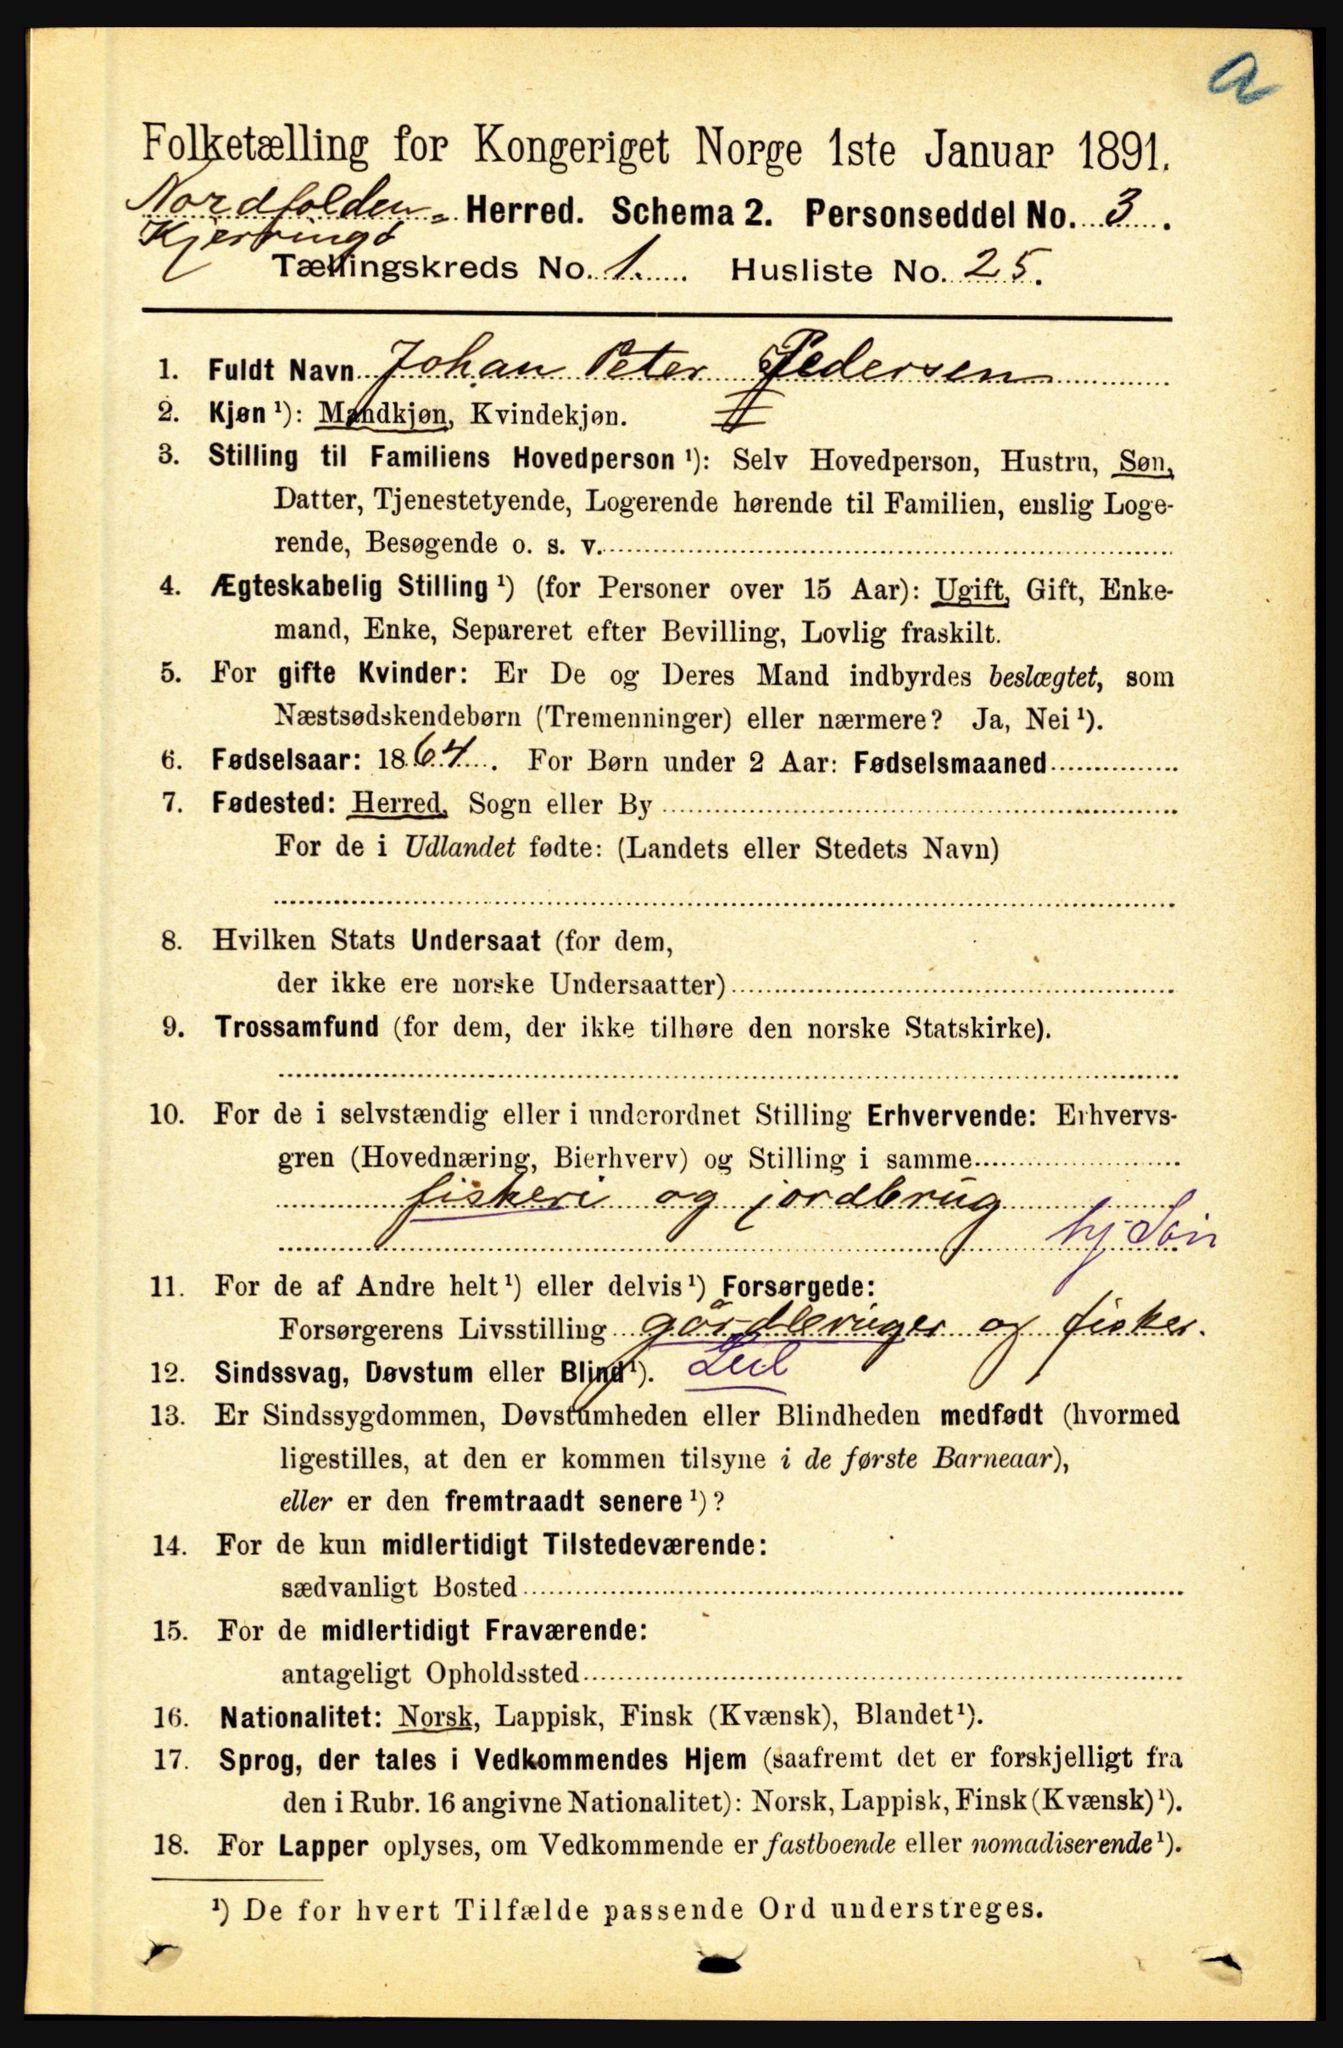 a
Folketælling for Kongeriget Norge 1ste Januar 1891.
Nordfolden- Herred. Schema 2. Personseddel No. 3.
Kjerringø
Tællingskreds No. 1. Husliste No. 25.
1. Fuldt Navn Johan Peter Pedersen
2. Kjøn ¹): Mandkjøn, Kvindekjøn.
3. Stilling til Familiens Hovedperson ¹): Selv Hovedperson, Hustru, Søn,
Datter, Tjenestetyende, Logerende hørende til Familien, enslig Loge-
rende, Besøgende o. s. v.
4. Ægteskabelig Stilling ¹) (for Personer over 15 Aar): Ugift, Gift, Enke-
mand, Enke, Separeret efter Bevilling, Lovlig fraskilt.
5. For gifte Kvinder: Er De og Deres Mand indbyrdes beslægtet, som
Næstsødskendebørn (Tremenninger) eller nærmere? Ja, Nei ¹).
6. Fødselsaar: 1864. For Børn under 2 Aar: Fødselsmaaned
7. Fødested: Herred, Sogn eller By
For de i Udlandet fødte: (Landets eller Stedets Navn)
8. Hvilken Stats Undersaat (for dem,
der ikke ere norske Undersaatter)
9. Trossamfund (for dem, der ikke tilhøre den norske Statskirke).
10. For de i selvstændig eller i underordnet Stilling Erhvervende: Erhvervs-
gren (Hovednæring, Bierhverv) og Stilling i samme
fiskeri og jordbrug
hj. Søn
11. For de af Andre helt ¹) eller delvis ¹) Forsørgede:
Forsørgerens Livsstilling gårdbruger og fisker.
12. Sindssvag, Døvstum eller Blind ¹). Leil
13. Er Sindssygdommen, Døvstumheden eller Blindheden medfødt (hvormed
ligestilles, at den er kommen tilsyne i de første Barneaar),
eller er den fremtraadt senere ¹)?
14. For de kun midlertidigt Tilstedeværende:
sædvanligt Bosted
15. For de midlertidigt Fraværende:
antageligt Opholdssted
16. Nationalitet: Norsk, Lappisk, Finsk (Kvænsk), Blandet ¹).
17. Sprog, der tales i Vedkommendes Hjem (saafremt det er forskjelligt fra
den i Rubr. 16 angivne Nationalitet): Norsk, Lappisk, Finsk (Kvænsk) ¹).
18. For Lapper oplyses, om Vedkommende er fastboende eller nomadiserende ¹).
¹) De for hvert Tilfælde passende Ord understreges.